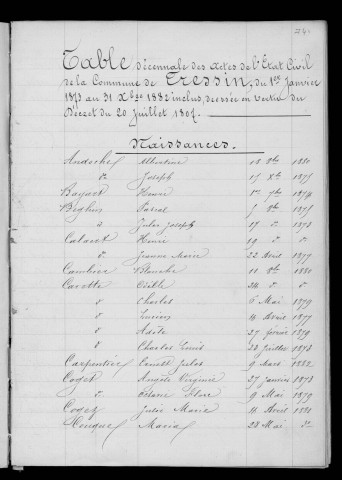 Table décennale des actes de l'Etat Civil
de la Commune de Tressin, du 1er Janvier
1873 au 31 Xbre 1882 inclus, dressée en vertu du
Décret du 20 juillet 1807.
Naissances.
Albertine 18 8bre 1880
do Joseph 17 Xbre 1875
Bayart Henri 1er 7bre 1874
Béghin Pascal 7 8bre 1875
d Jules Joseph 17 d 1873
Henri 19 d d
d Jeanne Marie 22 Avril 1877
Cambier Blanche 11 8bre 1880
Carette Odile 24 d d
d Charles 6 Mai 1879
d Lucien 14 Avril 1877
d Adèle 27 février 1879
d Charles Louis 28 Juillet 1873
Carpentier Camille Jules 9 Mars 1882
Coget Angèle Virginie 27 janvier 1873
d Octavie Flore 9 Mai 1879
Cogez Julie Marie 11 Avril 1880
Maria 28 Mai do